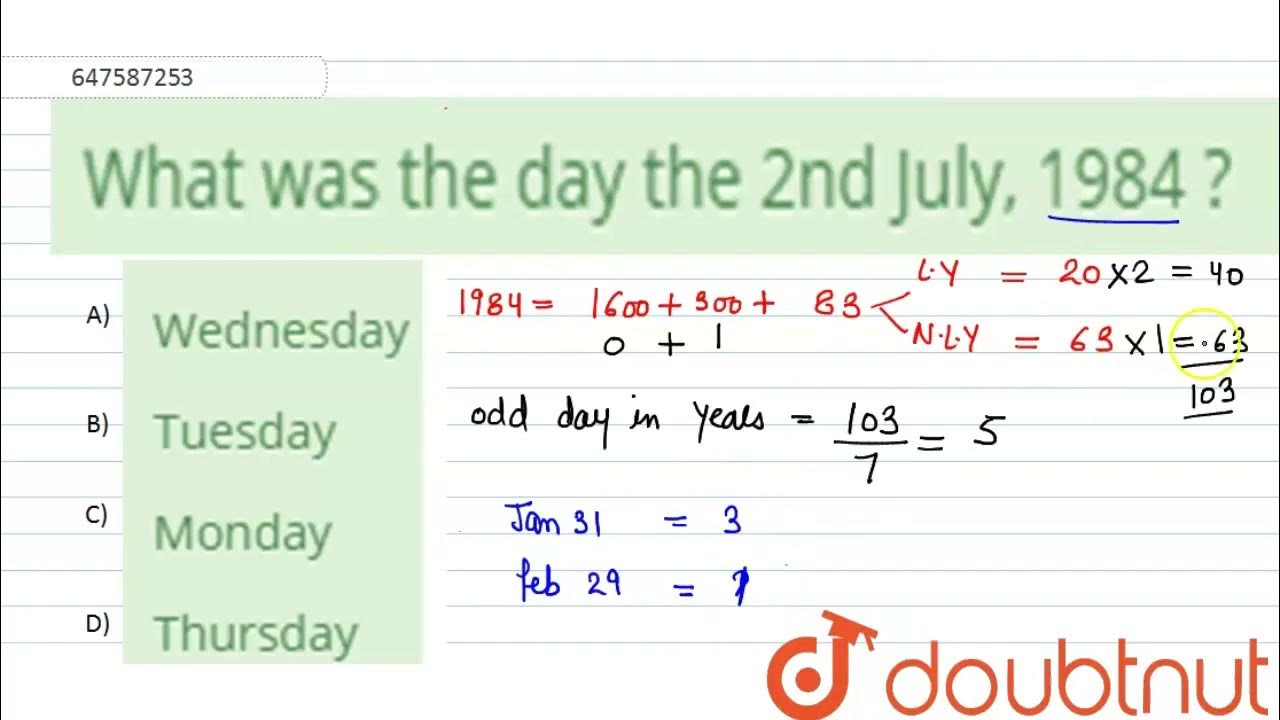 647587253
What was the day the 2nd July, 1984 ?
A) Wednesday
B) Tuesday
C) Monday
D) Thursday
L.Y = 20 x 2 = 40
1984 = 1600 + 300 + 83
N.L.Y = 63 x 1 = 63
0 + 1
103
odd day in years = 103/7 = 5
Jan 31 = 3
feb 29 = 1
doubtnut